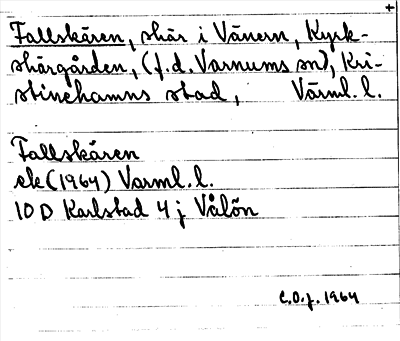 +
Fallskären, skär i Vänern, Kyrk-
skärgården, (f.d. Varnums sn), Kri-
stinehamns stad, Värml. l.
Fallskären
ek (1964) Värml. l.
10 D Karlstad 4 j Vålön
C.O.J. 1964